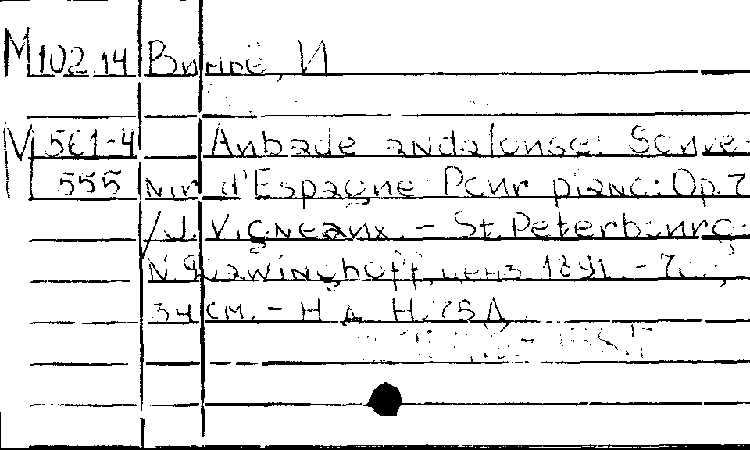 M 102.14 Виньё, И
M 561-4 Aubade andalouse: Souve-
555 nir d'Espagne: Pour piano: Op.7
/J. Vigneaux. - St. Peterbourg:
ценз. 1891. - 7 с.;
34 см. - Н.Д. Н.75 Д